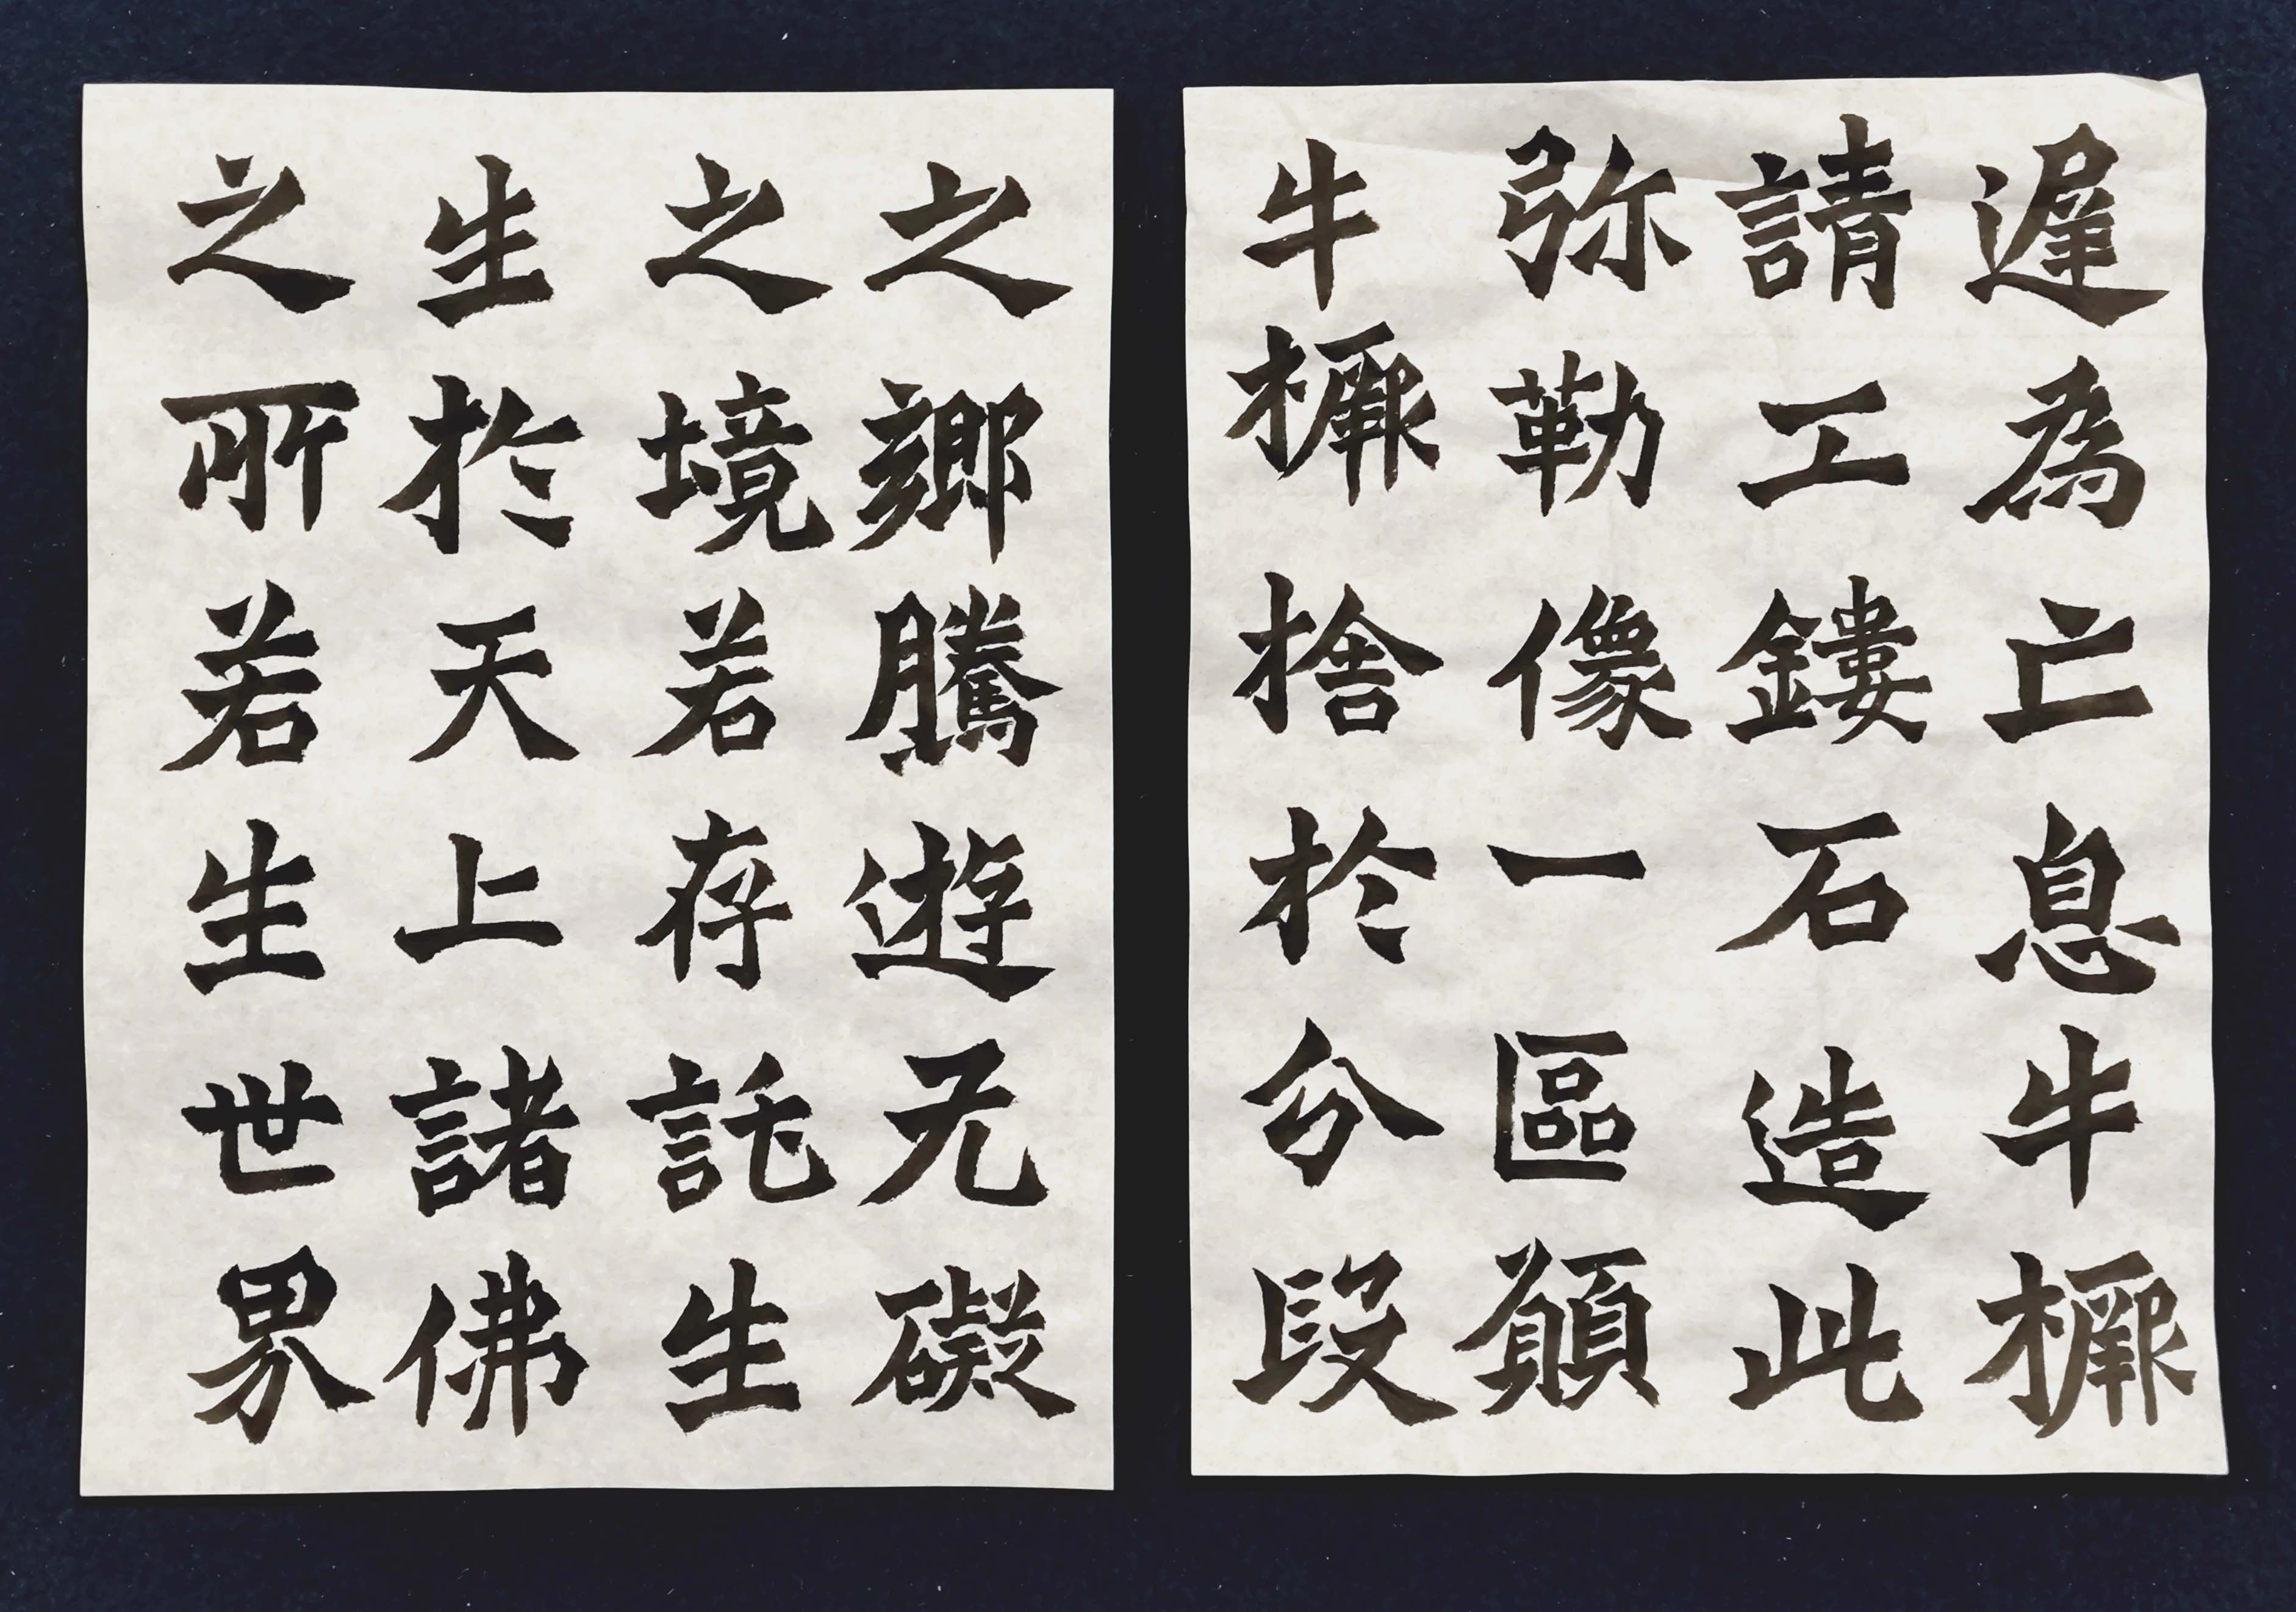 遲為亡息牛橛
請工鏤石造此
弥勒像一區願
牛橛捨於分段
之鄉騰遊无礙
之境若存託生
生於天上諸佛
之所若生世界